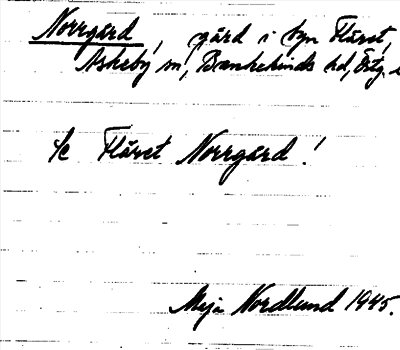 Norrgård, gård i byn Flåret,
Askeby sn, Bankekinds hd, Östg.
Se Flåret Norrgård!
Maja Nordlund 1945.